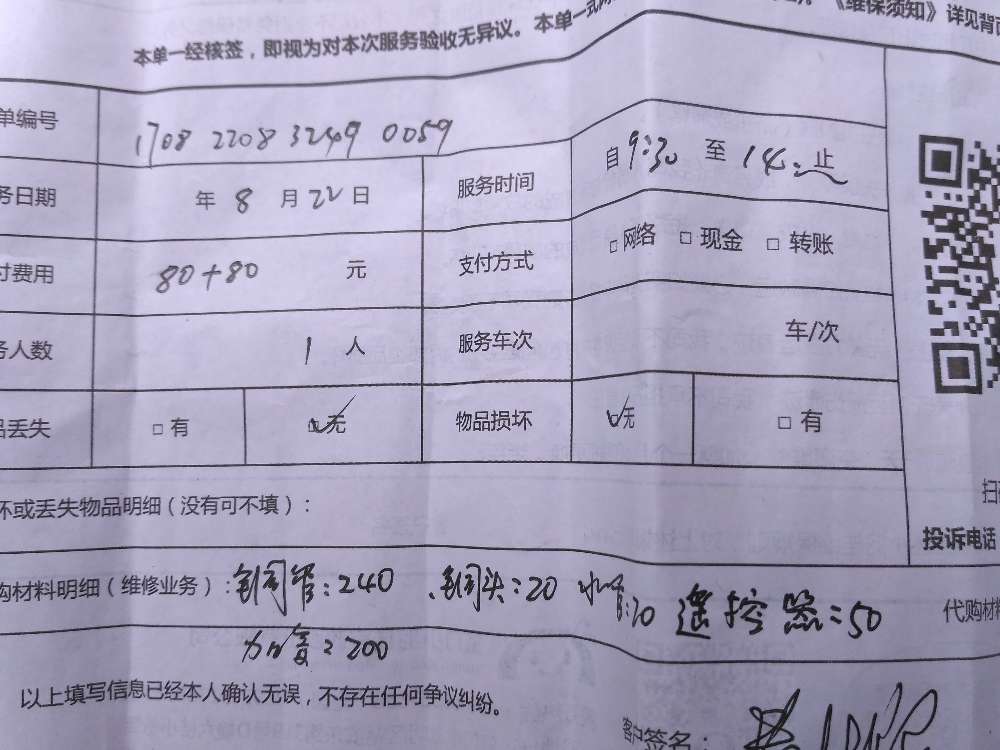 本单一经核签，即视为对本次服务验收无异议。本单一式
《维保须知》详见背
单编号 1708 2208 3249 0059
务日期 年 8 月 22 日 服务时间 自 9:30 至 14: 止
付费用 80+80 元 支付方式 □ 网络 □ 现金 □ 转账
务人数 1 人 服务车次 车/次
品丢失 □ 有 ☑ 无 物品损坏 ☑ 无 □ 有
坏或丢失物品明细（没有可不填）：
扫
投诉电话
购材料明细（维修业务）：铜管：240 、铜头：20 水管：20 遥控器：50
代购材
加氟：200
以上填写信息已经本人确认无误，不存在任何争议纠纷。
客户签名：